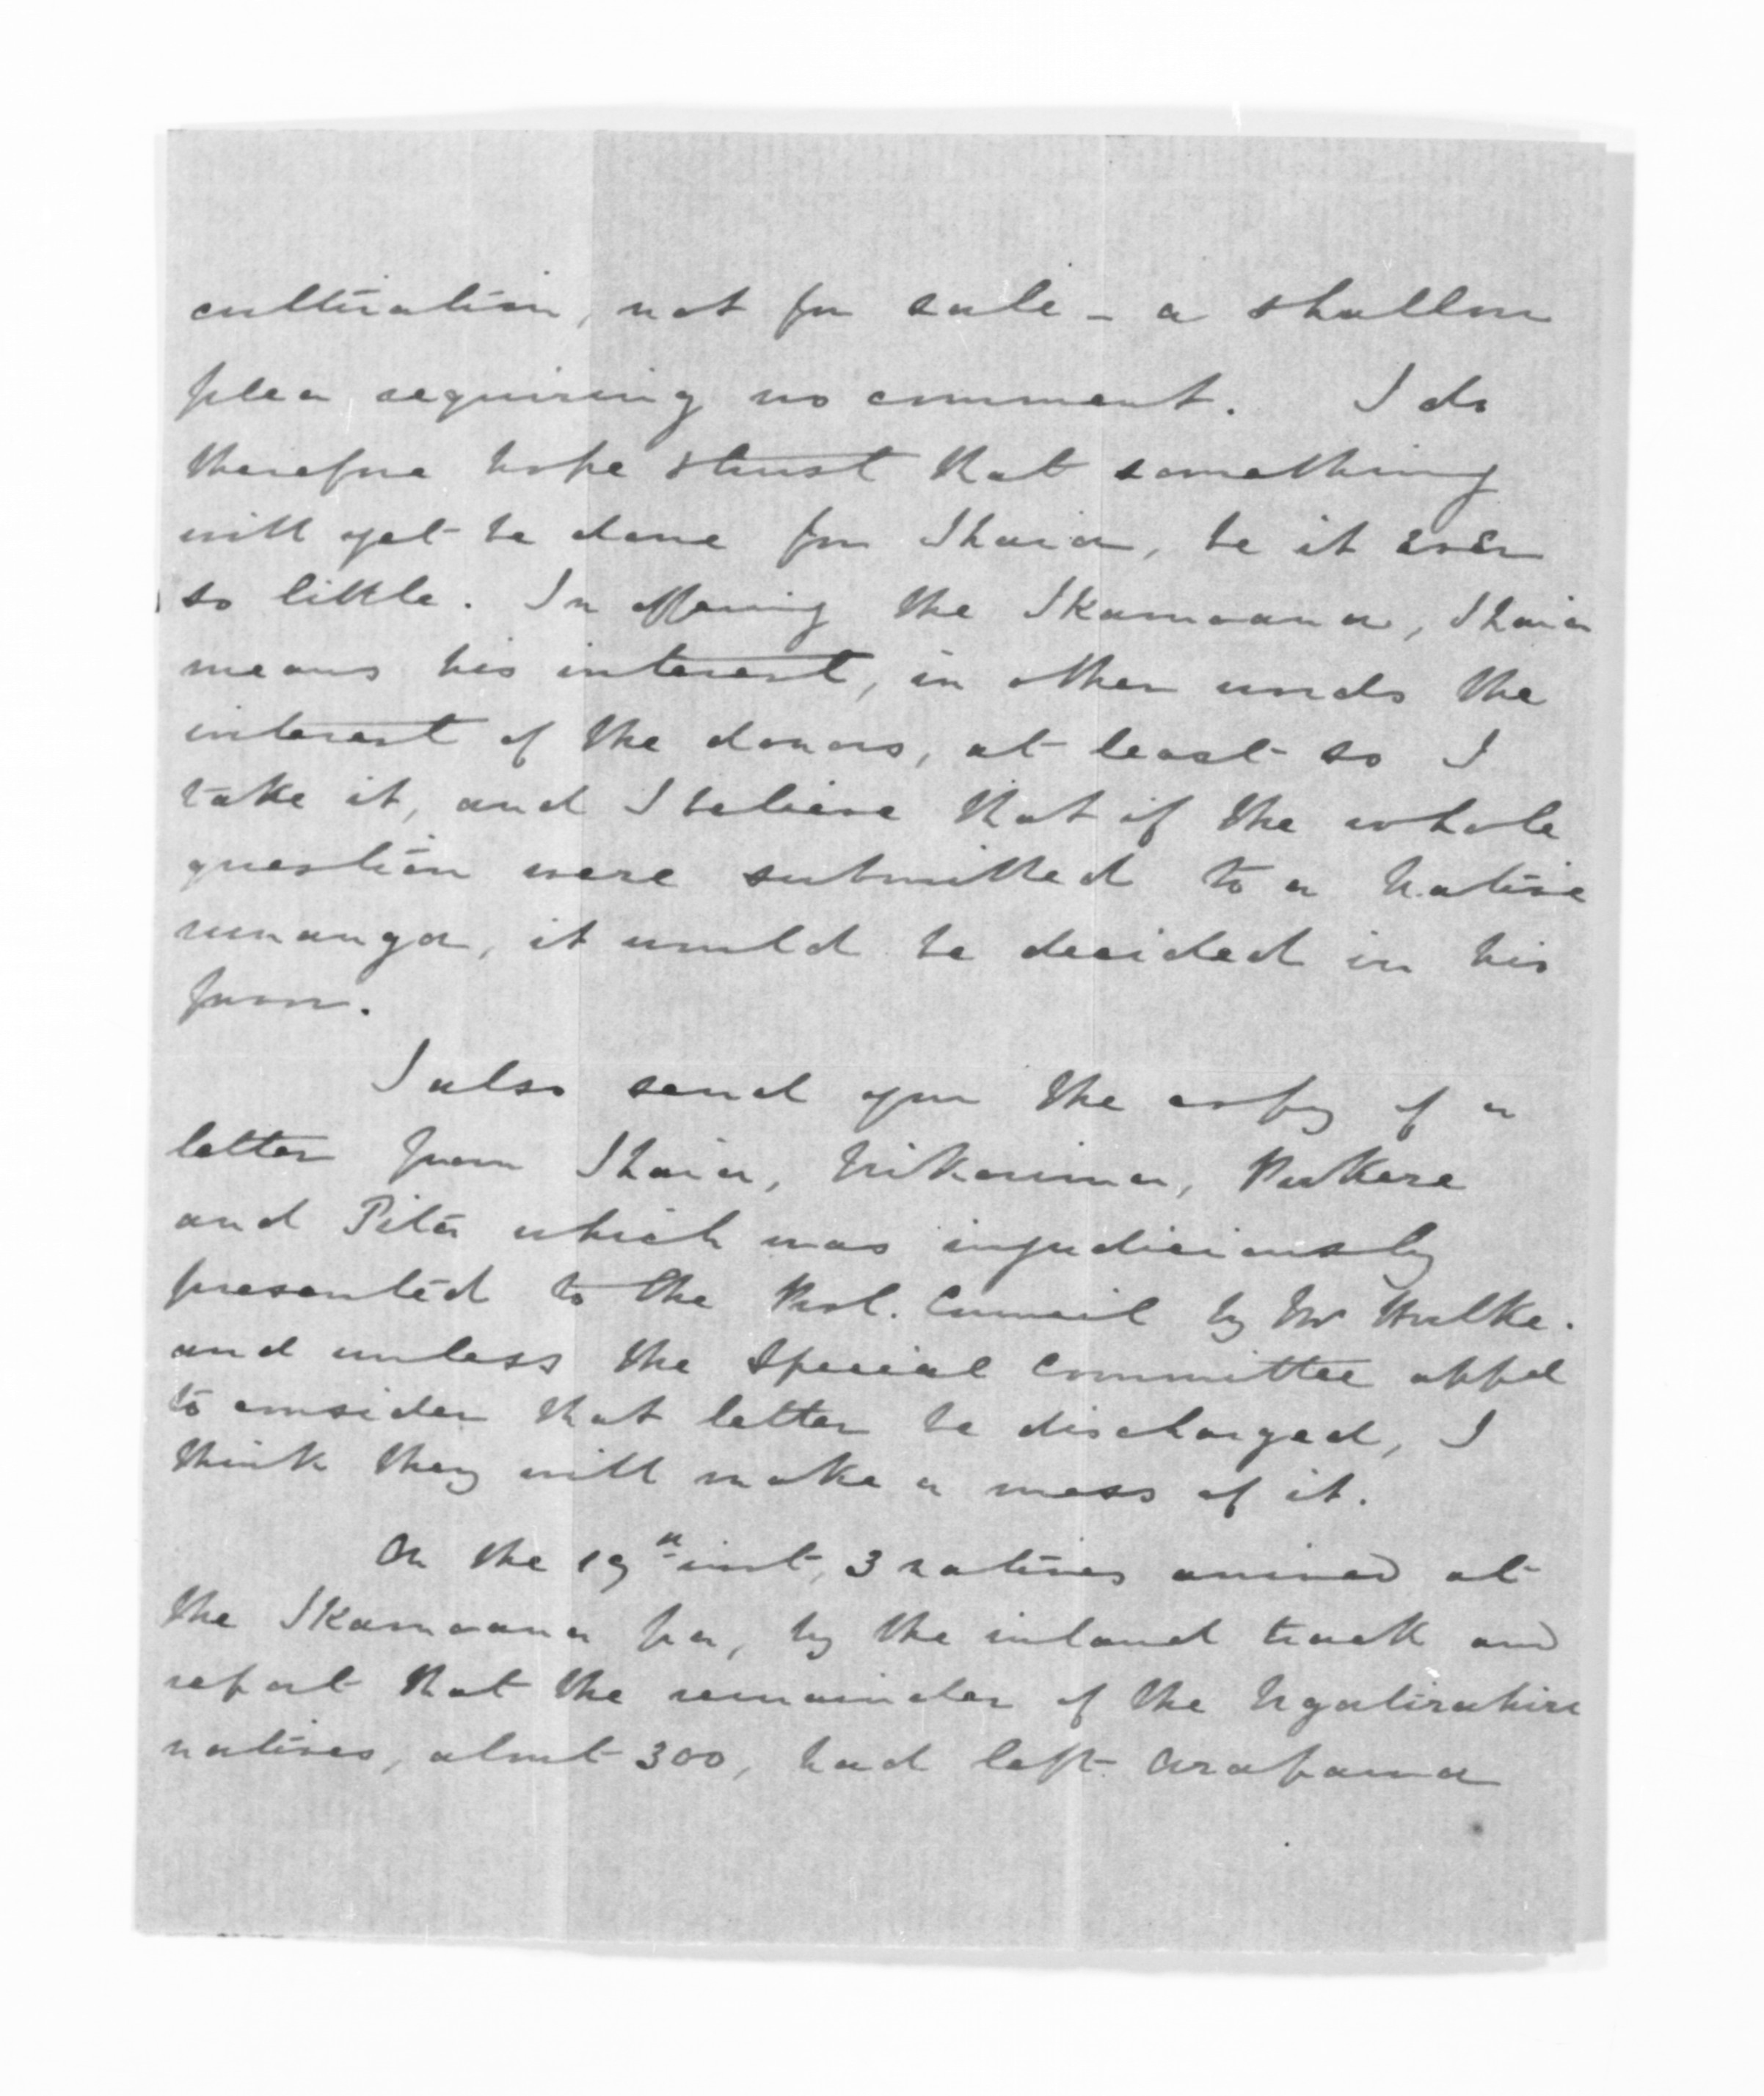 cultivation, not for sale - a shallow
plea requiring no comment. I do
therefore hope & trust that something
will yet be done for Ihaia, be it ever
so little. In offering the Ikamoana, Ihaia
means his interest, in other words the
interest of the donors, at least so I
take it, and I believe that if the whole
question were submitted to a Native
runanga, it would be decided in his
favor.
I also send you the copy of a
letter from Ihaia, Nikorima, Pukere
and Pita which was injudiciously
presented to the Provl. Council by Mr Hulke.
and unless the Special Committee appd
to consider that letter be discharged, I
think they will make a mess of it.
On the 19th inst, 3 natives arrived at
the Ikamoana pa, by the inland track and
report that the remainder of the Ngatirahiri
natives, about 300, had left Arapaoa